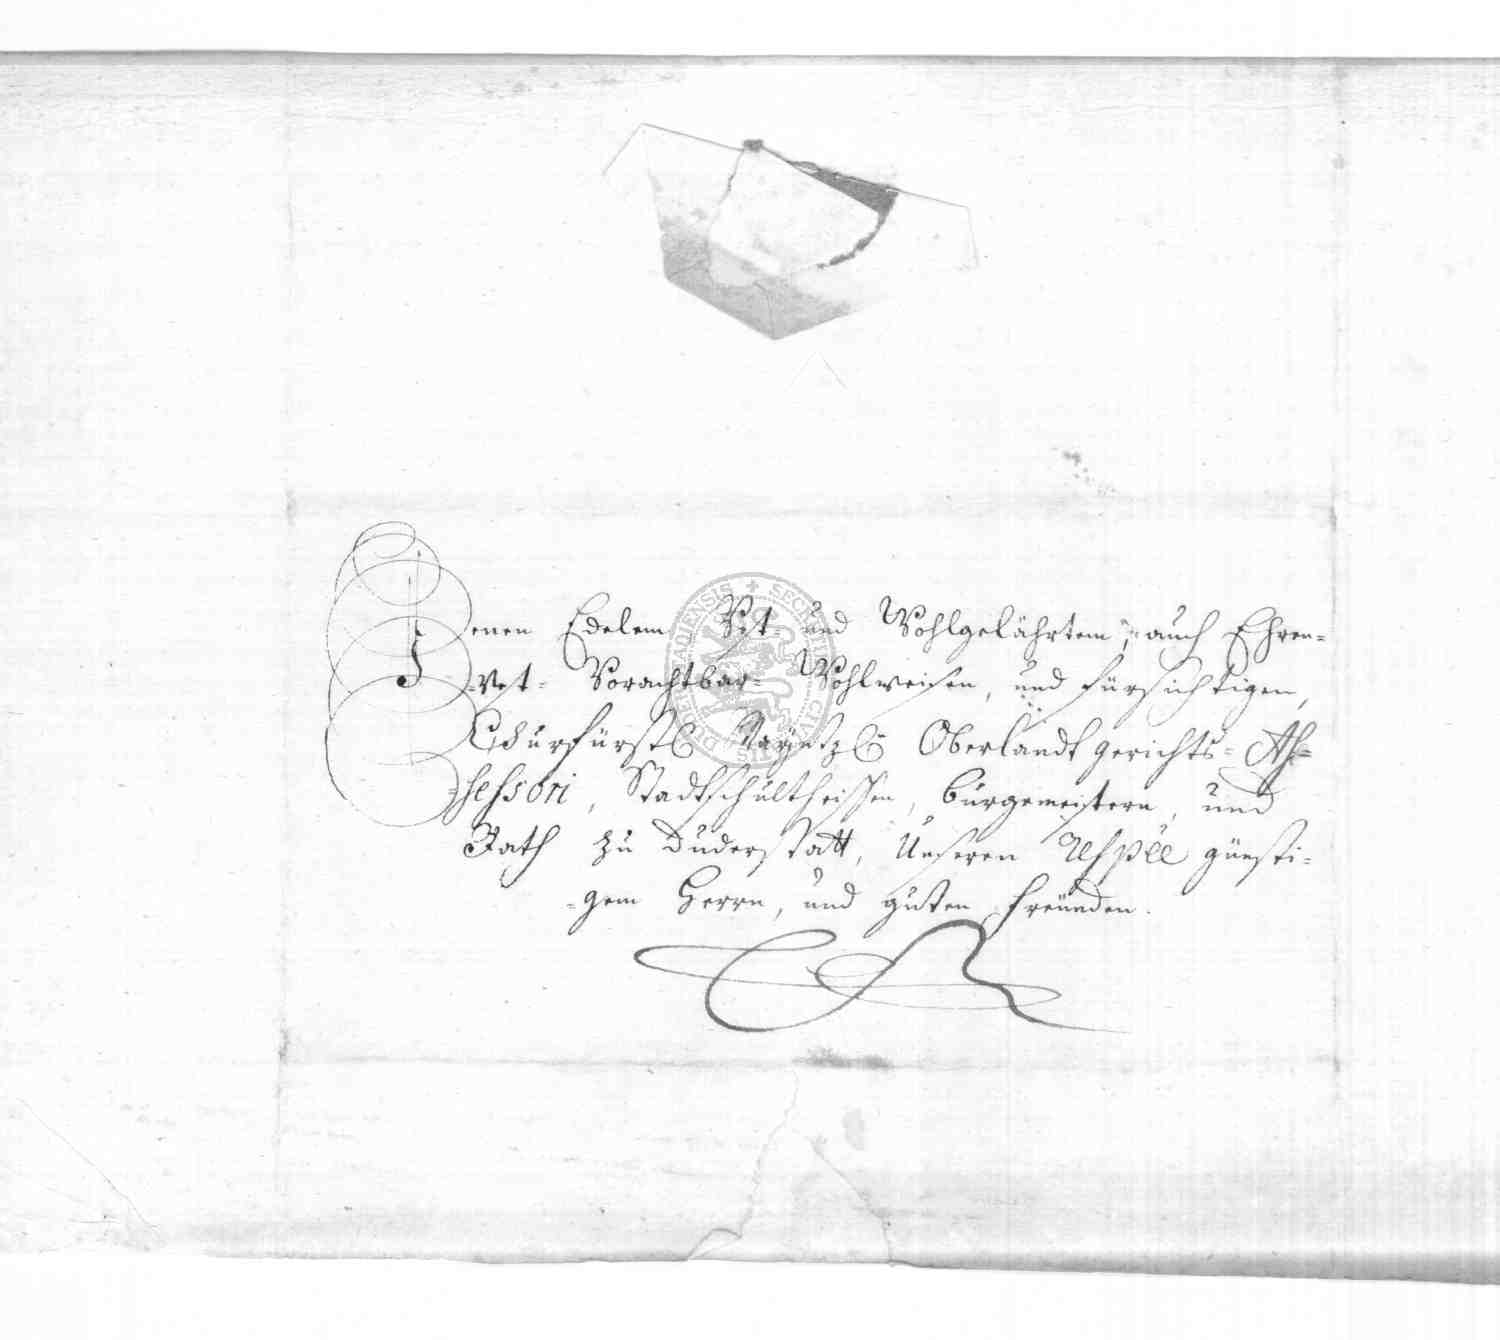 Denen Edelem Vest- und Wohlgelährtem, auch Ehren-
-Vest- Vorachtbar- Wohlweisen, und fürsichtigen,
Churfürstl Mayntzl Oberlandtgerichts- As-
-sessori, Stadtschultheissen, bürgemeistern, und
Rath zu Duderstatt, Unseren respèe günsti-
-gem Herrn, und guten freünden.